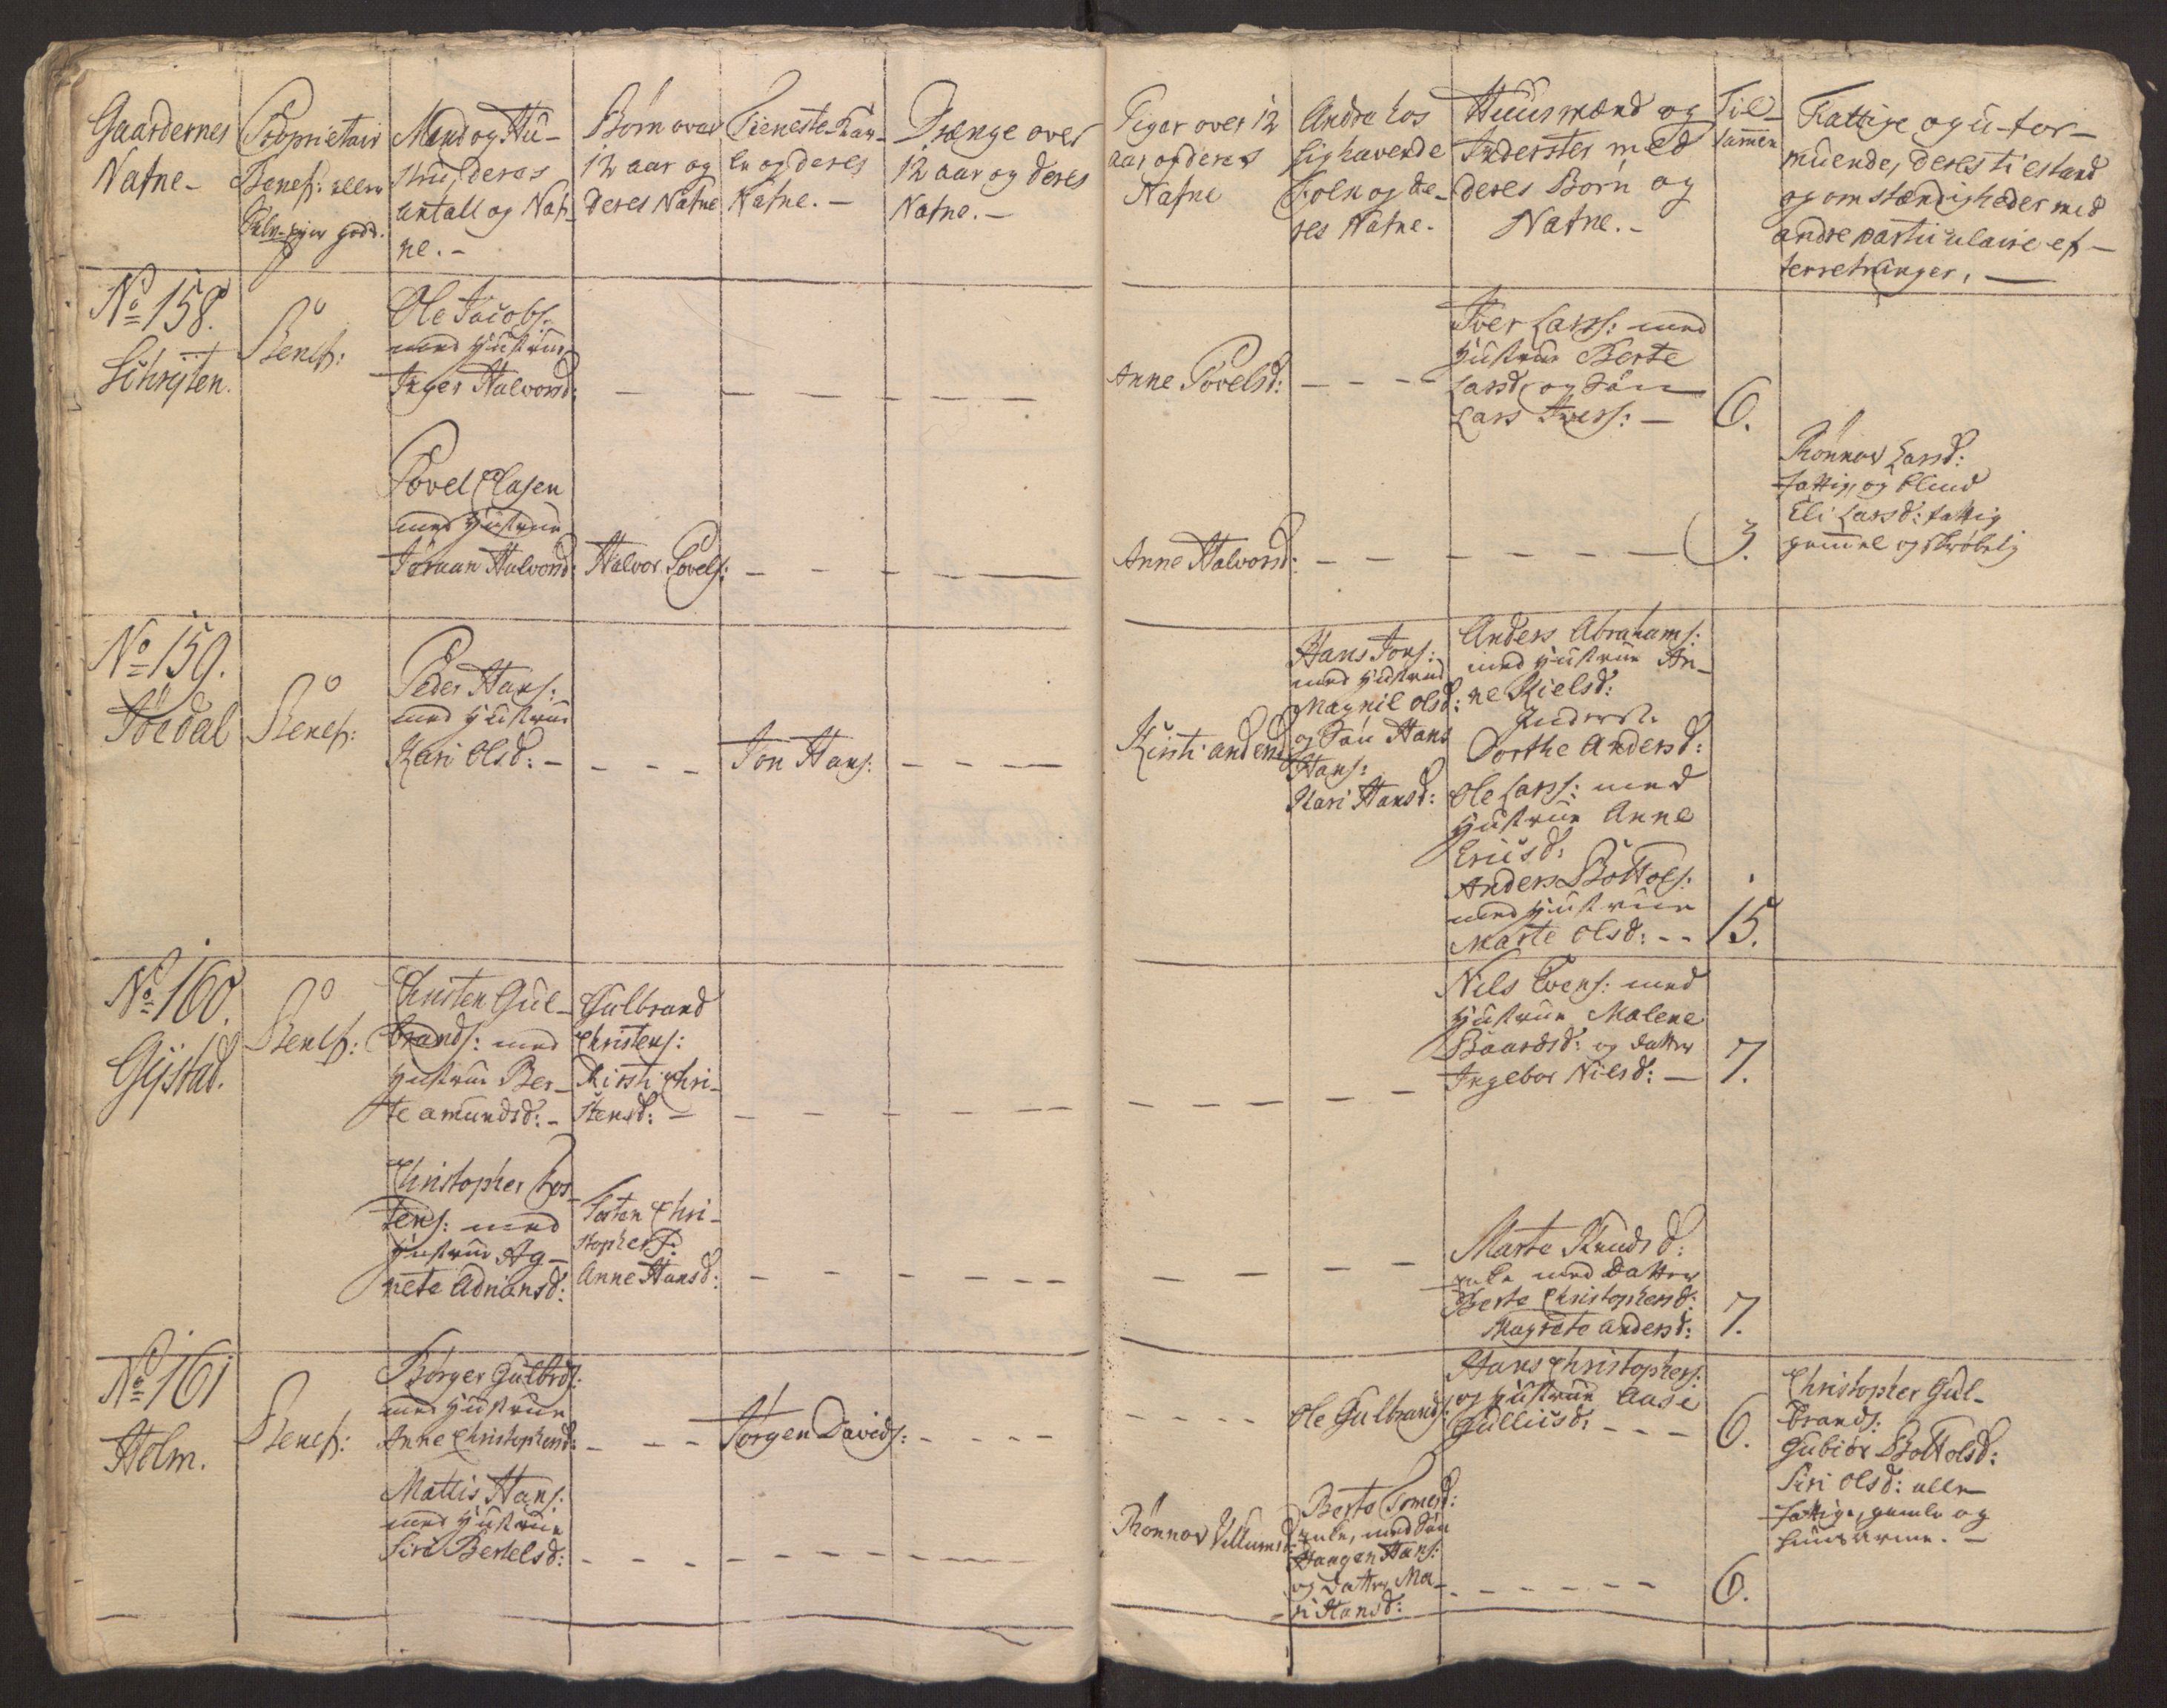 Gaardernes
Nafne-
Proprietair
Benef: eller
Selv-eyer godd.
Mand og Hu-
stru, deres
antall og Naf-
ne.-
Børn over
12 aar og
deres Nafne
Tieneste-Kar-
le og deres
Nafne.-
Drænge over
12 aar og deres
Nafne.-
Piger over 12
aar og deres
Nafne
Andre hos
sig havende
Folk og de-
res Nafne.
Huusmænd og
Inderster med
deres Børn og
Nafne.-
Til-
sammen
Fattige og u-for-
muende, deres tilstand
og omstændigheder med
andre particulaire ef-
terretninger,
No 158.
Benef:
Ole Jacobs:
med Hustrue
Inger Halvorsd:
Anne Povelsd:
Iver Larss:. med
Hustrue Berte
Larsd: og Søn
Lars Ivers:
6.
Povel Olasen
med Hustrue
Jøraan Halvorsd:
Halvor Povels:
Anne Halvorsd:
3.
Rønnov Larsd:
fattig, og blind
Eli Larsd: fattig
gammel og skrøbelig
No 159.
Benef:
Peder Hans:
med Hustrue
Kari Olsd:-
Jon Hans:
Kirsti Anders
Hans Jons:
med Hustrue
Magnil Olsd:
og Søn Hans
Hans:
Kari Hansd:
Anders Abrahams:
med Hustrue An-
ne Kielsd:
Inderst:
Dorthe Andersd:
Ole Larss: med
Hustrue Anne
Ericsd:
Anders Bottols:
med Hustrue
Marte Olsd:
15.
No 160.
Gystad.
Benef:
Christen Gul-
brands: med
Hustrue Ber-
te Amundsd:
Gulbrand
Christens:
Kirsti Chri-
stensd:
Nils Evens: med
Hustrue Malene
Baardsd: og Datter
Ingebor Nilsd:
7.
Christopher Tos-
tens: med
Hustrue Ag-
nete Adriansd:
Tosten Chri-
stophers:
Anne Hansd:
Marte Knudsd:
enke med Datter
Berte Christophersd:
Magrete Andersd:
7.
No 161
Holm.
Benef:
Børger Gulbrds:
med Hustrue
Anne Christophersd:
Jørgen Davids:
Ole Gulbrands:
Hans Christophers:
og Hustrue Aase
Gulliksd:
6.
Christopher Gul-
brands:
Gubiør Bottolsd:
Siri Olsd: alle
fattige, gamle og
huusarme.-
Mattis Hans:
med Hustrue
Siri Bertelsd:
Rønnov Villumsd:
Berte Tomesd:
enke, med Søn
Haagen Hans:
og Datter Ma-
ri Hansd:
6.